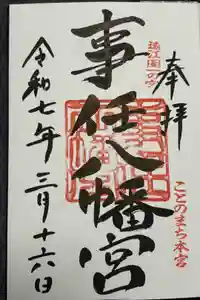 奉拝
ことのまち本宮
遠江国一の宮
事任八幡宮
令和七年三月十六日